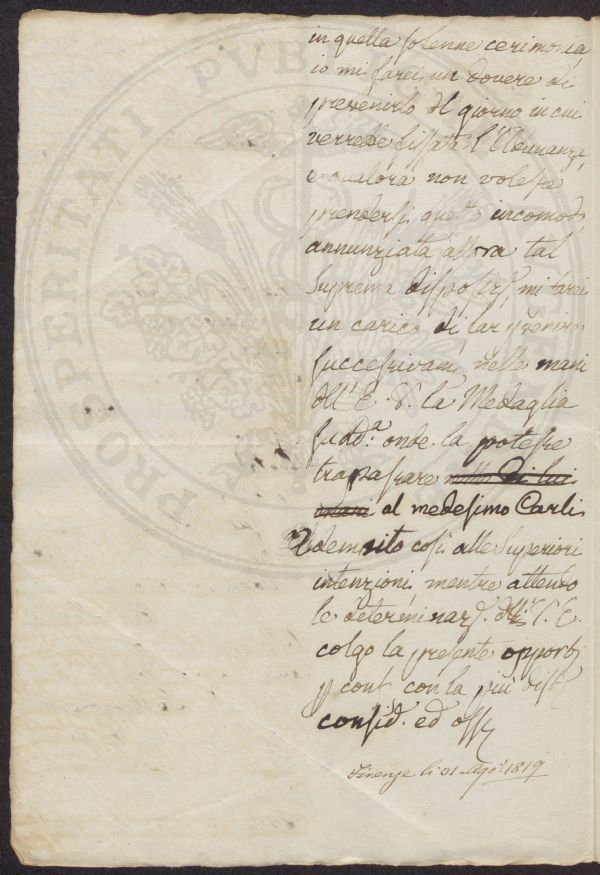 in quella solenne cerimonia
io mi farei un dovere di
prevenirlo del giorno in cui
verrebbe fissata l'Adunanza,
e qualora non volesse
prendersi questo incomodo
annunziata allora tal
Suprema disposiz. mi farei
un carico di far pervenire
successivam. nelle mani
dell'E. V. la Medaglia
sudd.a onde la potesse
trapassare nelle di lui
mani al medesimo Carli
Adempito così alle Superiori
intenzioni, mentre attendo
le determinaz. dell' E.
colgo la presente opport.
con la più dist.
consid. ed oss.
Firenze li 31 Ago. 1819
PROSPERITATI PVBLICAE